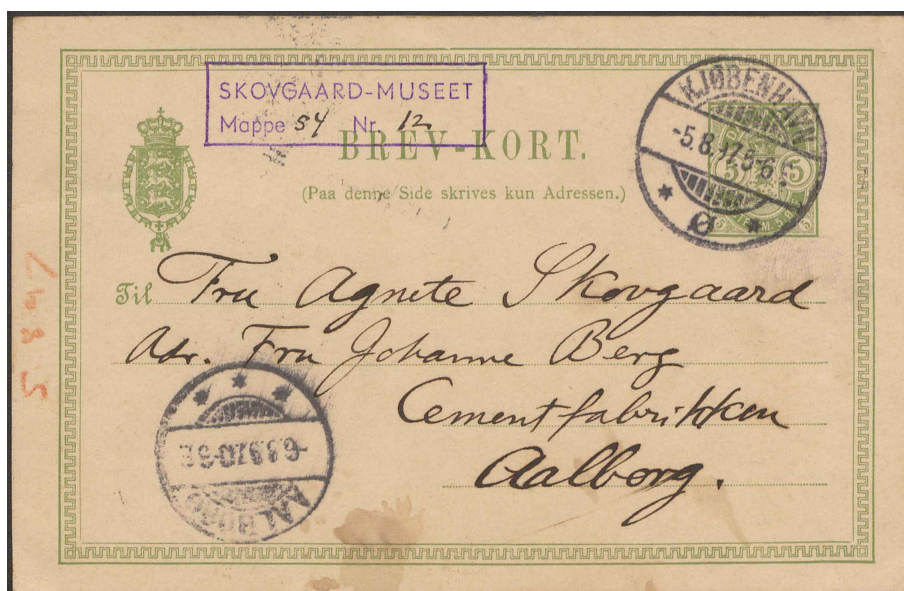 SKOVGAARD-MUSEET
Mappe 54 Nr. 12
BREV-KORT.
(Paa denne Side skrives kun Adressen.)
KJØBENHAVN
-5.8.97.5-6 E.
Ø
5
Til Fru Agnete Skovgaard
Adr. Fru Johanne Berg
Cementfabrikken
Aalborg.
AALBORG
5 8 97